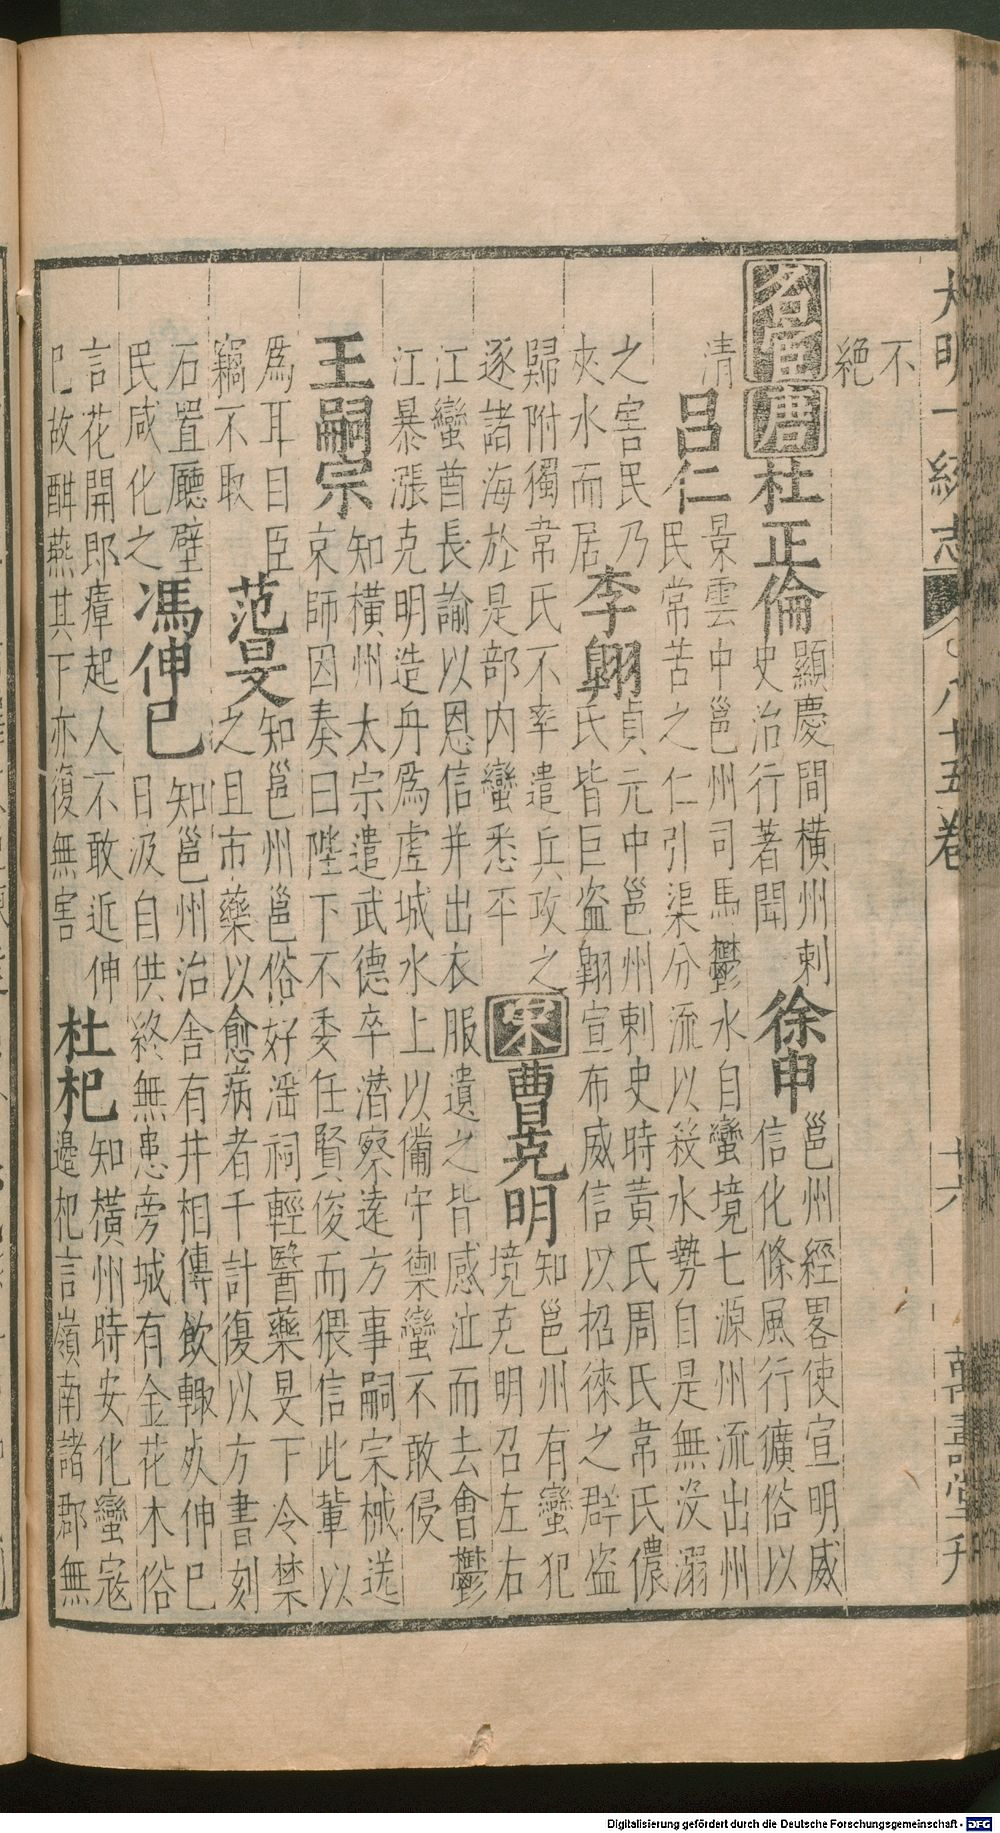 大明一統志 八十五卷 十六 萬壽堂刊
不
絶
名宦 唐 杜正倫 顯慶間橫州刺
史治行著聞
徐申 邕州經畧使宣明威
信化條風行獷俗以
清 呂仁 景雲中邕州司馬鬱水自蠻境七源州流出州
民常苦之仁引渠分流以殺水勢自是無没溺
之害民乃
夾水而居
李翺 貞元中邕州刺史時黃氏周氏韋氏儂
氏皆巨盜翺宣布威信以招徠之群盜
歸附獨常氏不率遣兵攻之
逐諸海於是部內蠻悉平
宋 曹克明 知邕州有蠻犯
境克明召左右
江蠻酋長諭以恩信并出衣服遺之皆感泣而去會鬱
江暴漲克明造舟爲虛城水上以備守禦蠻不敢侵
王嗣宗 知橫州太宗遣武德卒潛察遠方事嗣宗械送
京師因奏曰陛下不委任賢俊而猥信此輩以
爲耳目臣
竊不取
范旻 知邕州邕俗好滛祠輕醫藥旻下令禁
之且市藥以愈病者千計復以方書刻
石置廳壁
民咸化之
馮伸已 知邕州治舍有井相傳飲輙死伸已
日汲自供終無患旁城有金花木俗
言花開即瘴起人不敢近伸
已故酣燕其下亦復無害
杜杞 知橫州時安化蠻寇
邊杞言嶺南諸郡無
Digitalisierung gefördert durch die Deutsche Forschungsgemeinschaft - DFG